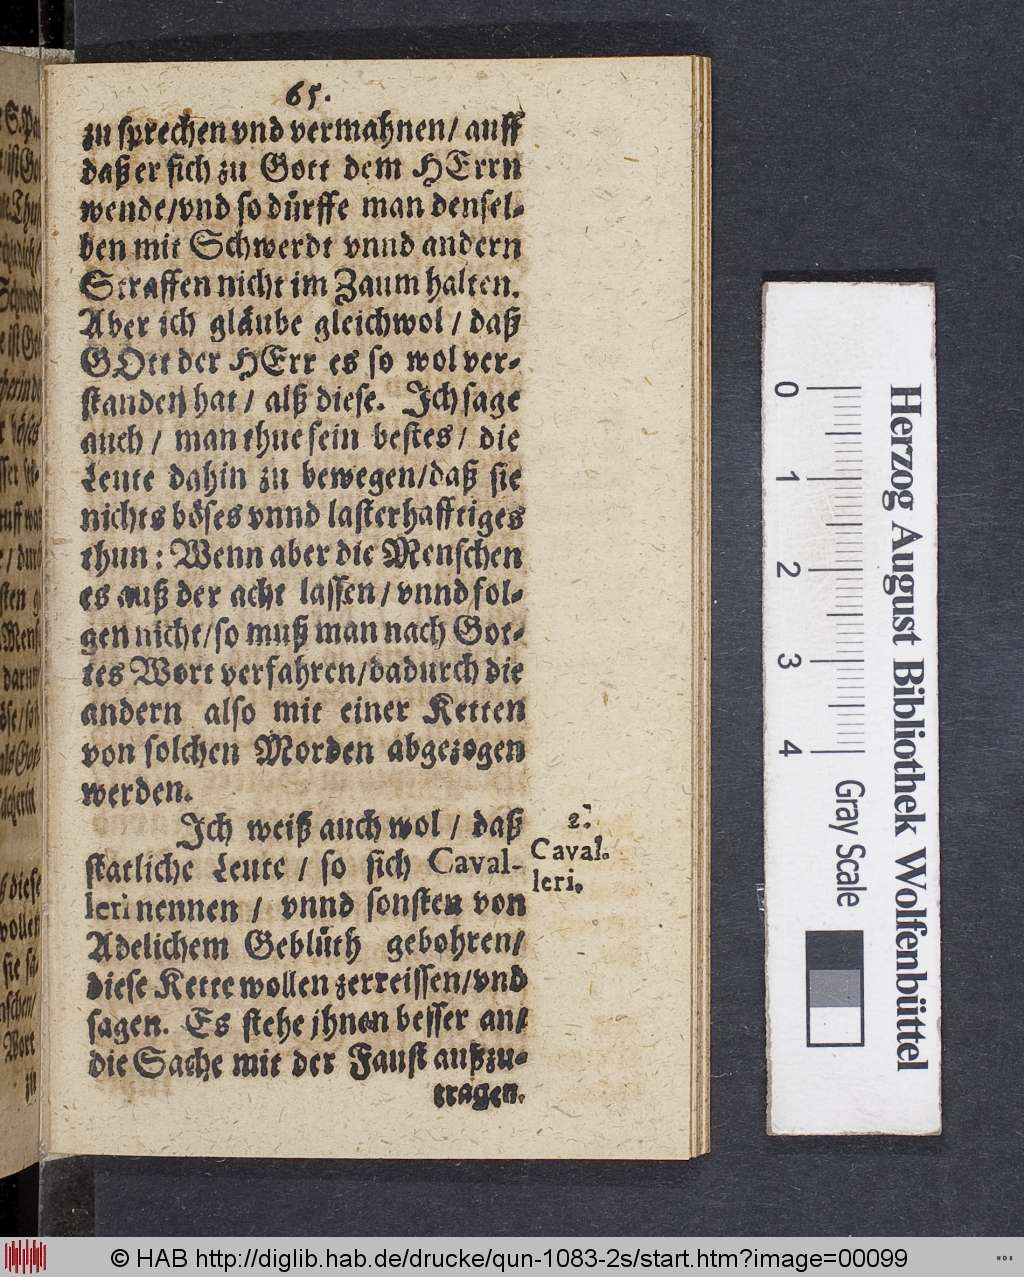 65.
zu sprechen vnd vermahnen/ auff
daß er sich zu Gott dem HErrn
wende/vnd so dürffe man densel-
ben mit Schwerdt vnnd andern
Straffen nicht im Zaum halten.
Aber ich gläube gleichwol / daß
GOtt der HErr es so wol ver-
standen hat / alß diese. Ich sage
auch / man thue sein bestes / die
Leute dahin zu bewegen/daß sie
nichts böses vnnd lasterhafftiges
thun : Wenn aber die Menschen
es auß der acht lassen / vnnd fol-
gen nicht/so muß man nach Got-
tes Wort verfahren/dadurch die
andern also mit einer Ketten
von solchen Morden abgezogen
werden.
Ich weiß auch wol / daß
statliche Leute / so sich Caval-
leri nennen / vnnd sonsten von
Adelichem Geblüth gebohren/
diese Kette wollen zerreissen/vnd
sagen. Es stehe jhnen besser an/
die Sache mit der Faust außzu-
tragen.
2.
Caval-
leri.
0 1 2 3 4
Gray Scale
Herzog August Bibliothek Wolfenbüttel
© HAB http://diglib.hab.de/drucke/qun-1083-2s/start.htm?image=00099